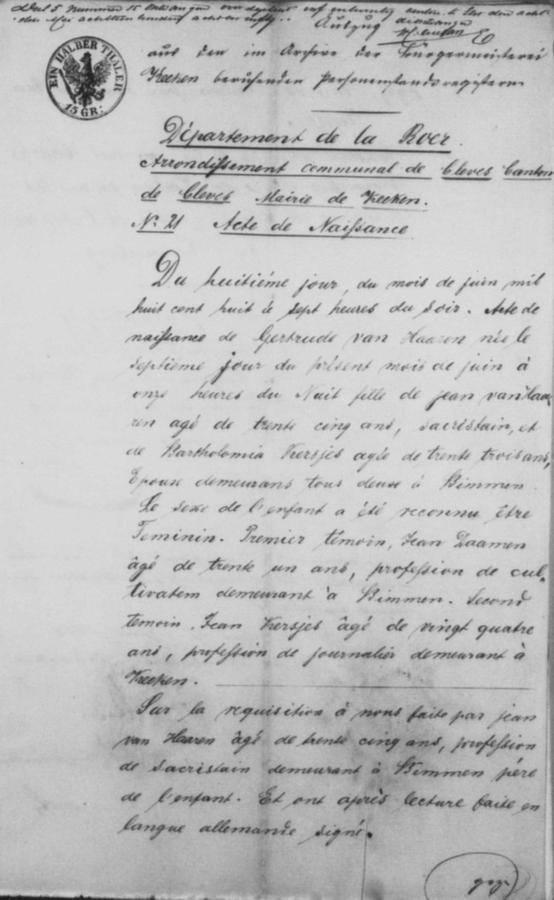 Deel 5 nummer 15
Auszug
EIN HALBER THALER
15 GR:
aus den im Archive der Bürgermeisterei
Keeken beruhenden Personenstandsregistern
Département de la Roer.
Arrondissement communal de Cleves Canton
de Cleves Mairie de Keeken.
N: 21 Acte de Naissance
Du huitiéme jour, du mois de juin mil
huit cent huit à sept heures du soir. Acte de
naissance de Gertrude van Haaren née le
septieme jour du présent mois de juin à
onze heures du Nuit fille de jean van Haa
ren agé de trente cinq ans, sacristain, et
de Bartholomia Kersjes agée de trente trois ans,
Epoux demeurans tous deux à Bimmen.
Le sexe de l'enfant a été reconnu être
Feminin. Premier témoin, Jean Daamen
âgé de trente un ans, profession de cul-
tivateur demeurant à Bimmen. Second
temoin, Jean Kersjes âgé de vingt quatre
ans, profession de journalier demeurant à
Keeken.
Sur la requisition à nous faite par jean
van Haaren âgé de trente cinq ans, profession
de sacristain demeurant à Bimmen père
de l'enfant. Et ont après lecture faite en
langue allemande signé.
gez.